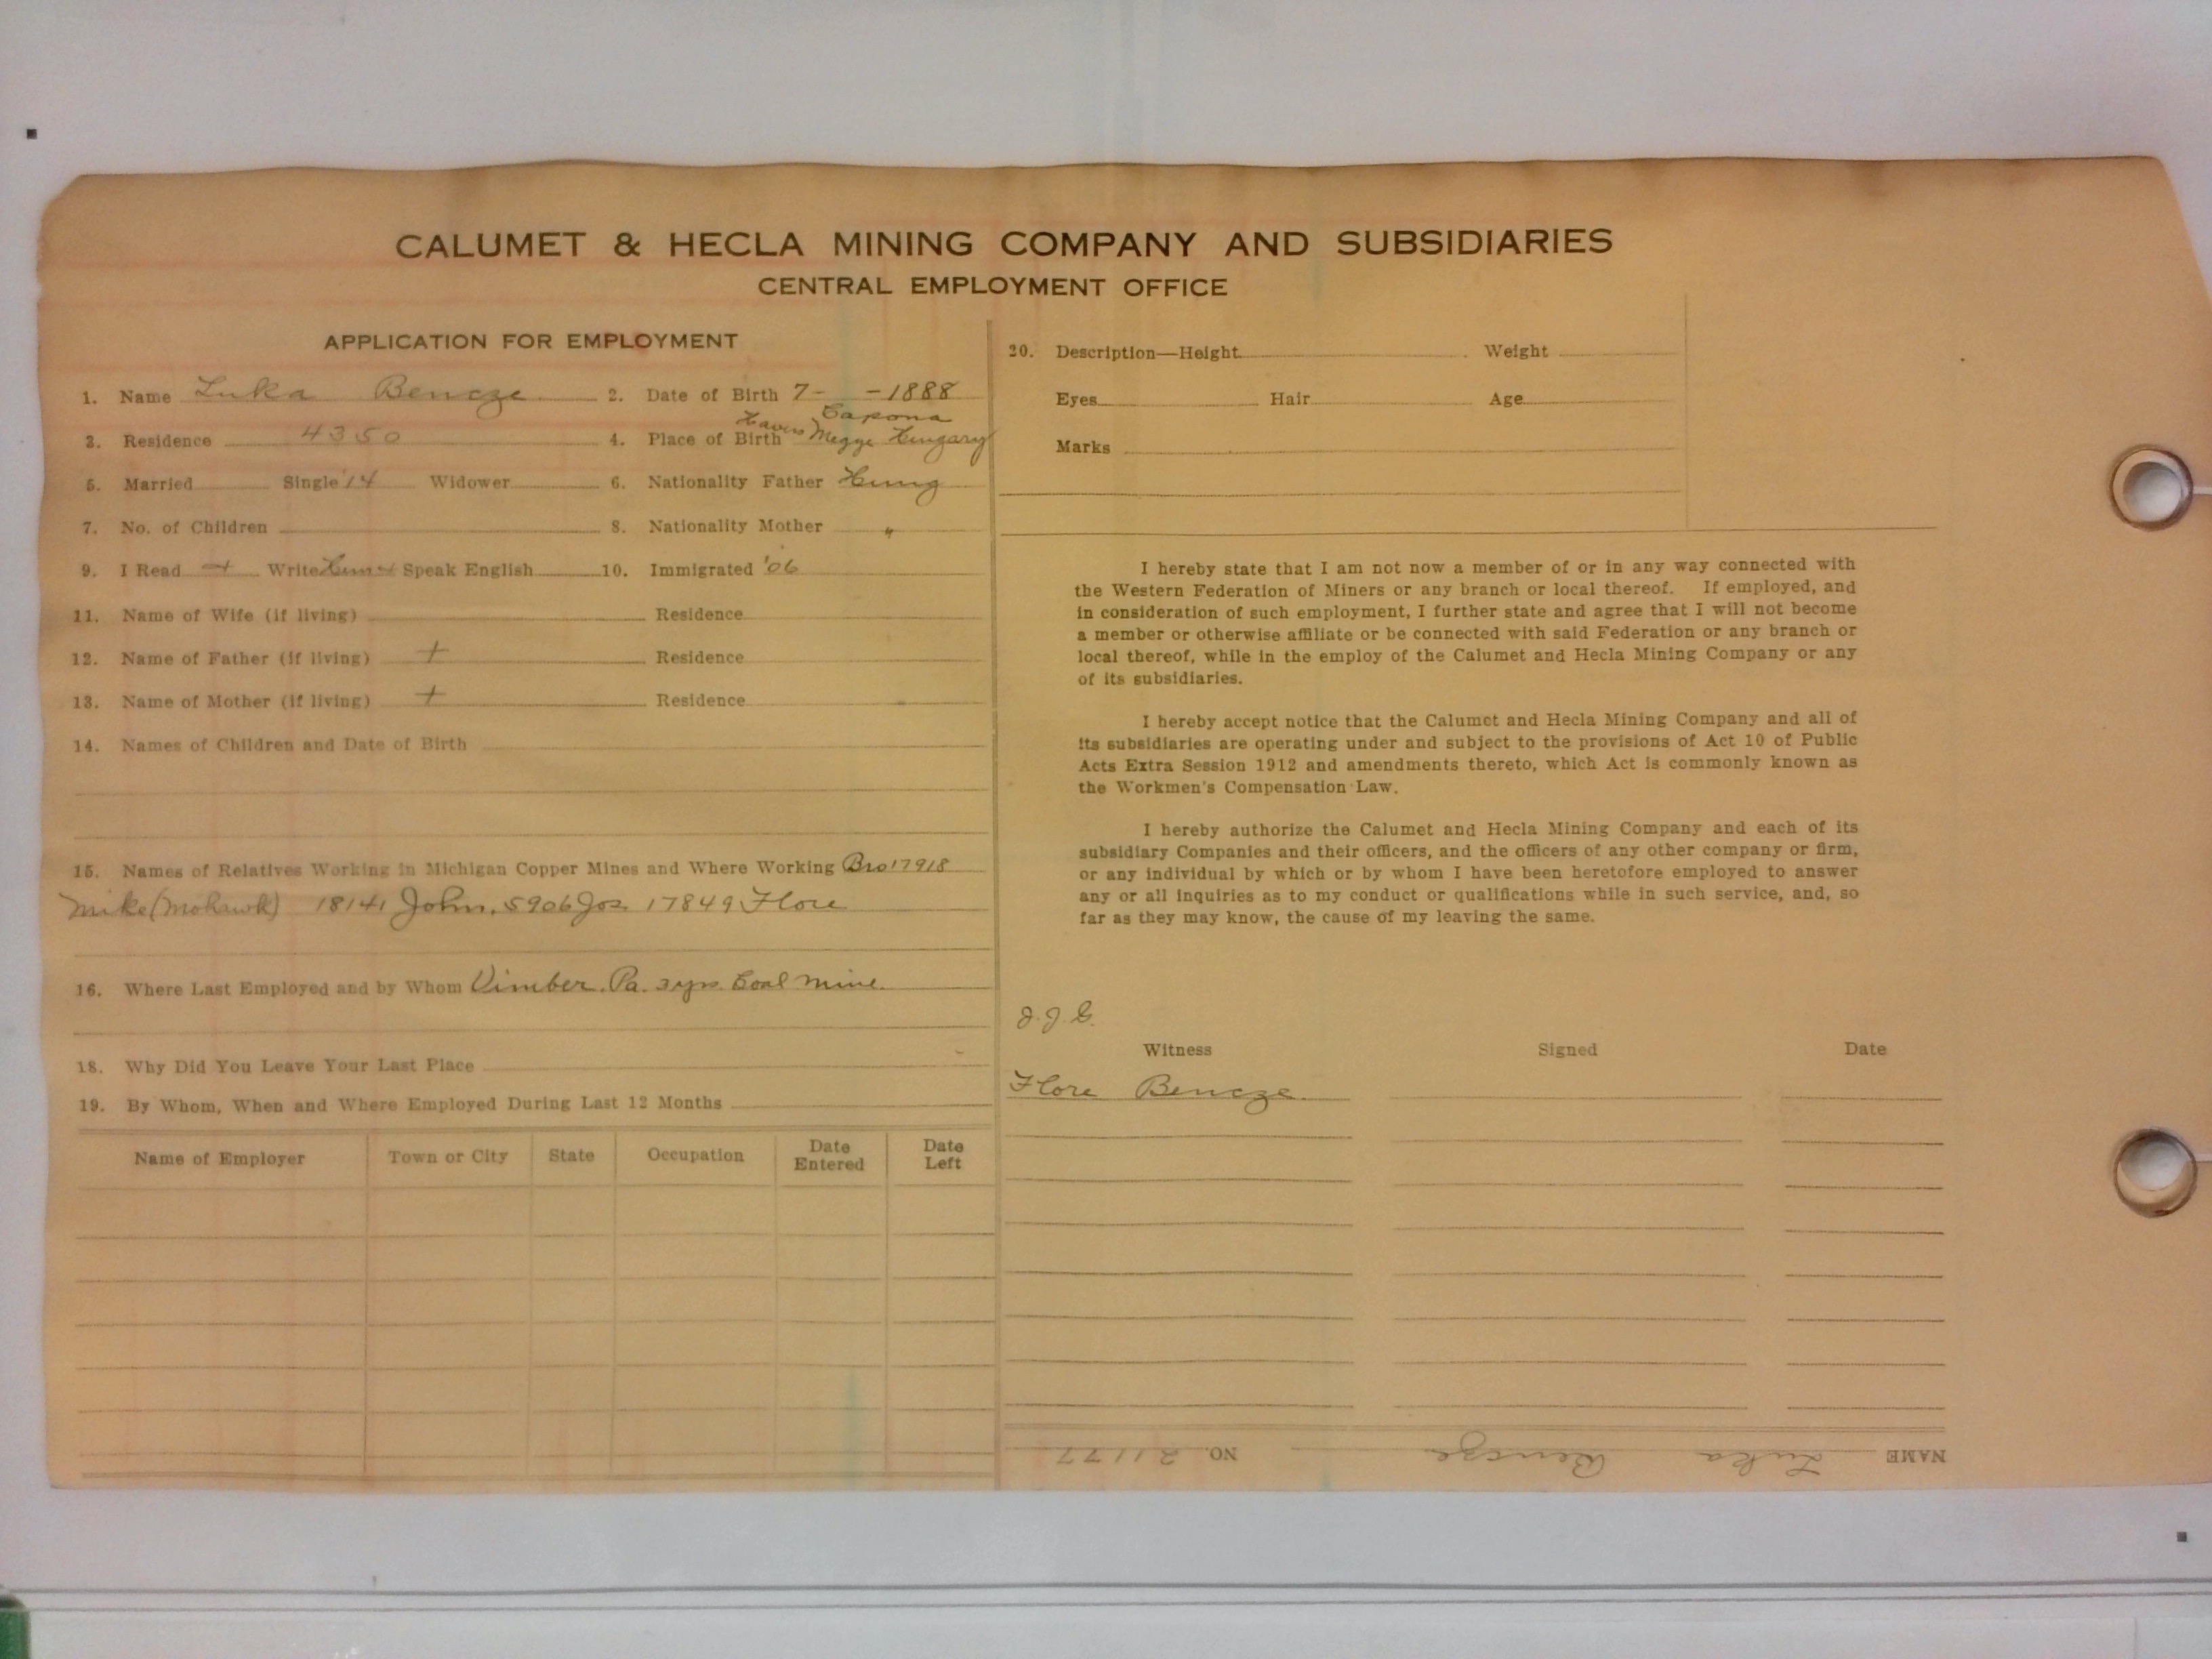 CALUMET & HECLA MINING COMPANY AND SUBSIDIARIES
CENTRAL EMPLOYMENT OFFICE
APPLICATION FOR EMPLOYMENT
1. Name Luka Bencze 2. Date of Birth 7- -1888
Capona
3. Residence 4350 4. Place of Birth Megye Hungary
5. Married Single '14 Widower 6. Nationality Father Hung
7. No. of Children 8. Nationality Mother "
9. I Read + Write Speak English 10. Immigrated '06
11. Name of Wife (if living) Residence
12. Name of Father (if living) + Residence
13. Name of Mother (if living) + Residence
14. Names of Children and Date of Birth
15. Names of Relatives Working in Michigan Copper Mines and Where Working Bro 17918
Mike (Mohawk) 18141 John, 5906 Jos. 17849 Flore
16. Where Last Employed and by Whom Vimber. Pa. 3 yrs. Coal mine.
18. Why Did You Leave Your Last Place
19. By Whom, When and Where Employed During Last 12 Months
Name of Employer Town or City State Occupation Date Entered Date Left
20. Description—Height Weight
Eyes Hair Age
Marks
I hereby state that I am not now a member of or in any way connected with
the Western Federation of Miners or any branch or local thereof. If employed, and
in consideration of such employment, I further state and agree that I will not become
a member or otherwise affiliate or be connected with said Federation or any branch or
local thereof, while in the employ of the Calumet and Hecla Mining Company or any
of its subsidiaries.
I hereby accept notice that the Calumet and Hecla Mining Company and all of
its subsidiaries are operating under and subject to the provisions of Act 10 of Public
Acts Extra Session 1912 and amendments thereto, which Act is commonly known as
the Workmen's Compensation Law.
I hereby authorize the Calumet and Hecla Mining Company and each of its
subsidiary Companies and their officers, and the officers of any other company or firm,
or any individual by which or by whom I have been heretofore employed to answer
any or all inquiries as to my conduct or qualifications while in such service, and, so
far as they may know, the cause of my leaving the same.
J.J.G.
Witness Signed Date
Flore Bencze
NAME Luka Bencze NO. 21177